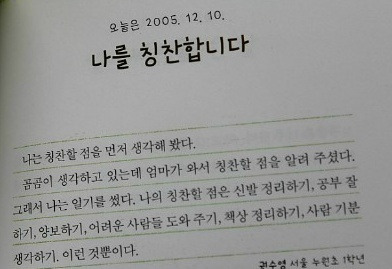 오늘은 2005. 12. 10.
나를 칭찬합니다
나는 칭찬할 점을 먼저 생각해 봤다.
곰곰이 생각하고 있는데 엄마가 와서 칭찬할 점을 알려 주셨다.
그래서 나는 일기를 썼다. 나의 칭찬할 점은 신발 정리하기, 공부 잘
하기, 양보하기, 어려운 사람들 도와 주기, 책상 정리하기, 사람 기분
생각하기. 이런 것뿐이다.
권수영 서울 누원초 1학년